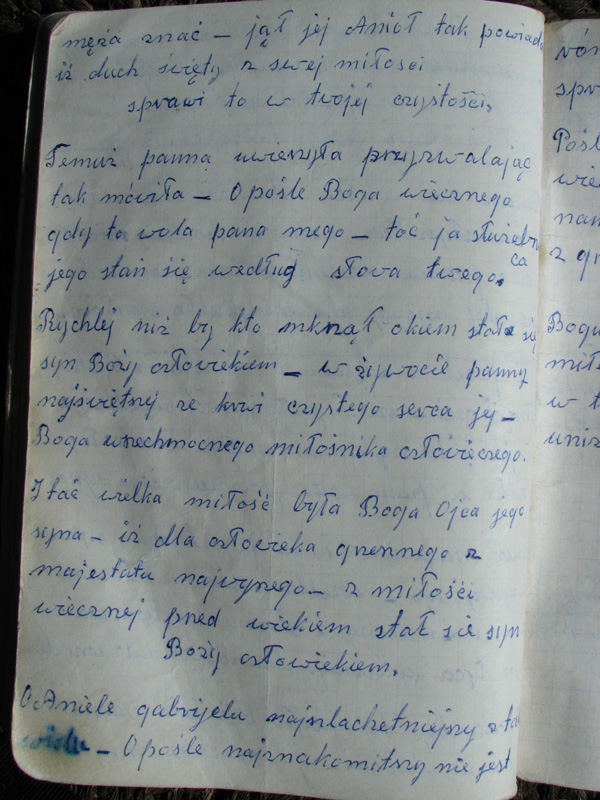 męża znać – jął jej Anioł tak powiada
iż duch święty z swej miłości
sprawi to w twojej czystości,
Temuż panna uwierzyła przyzwalając
tak móviła – O pośle Boga wiecznego
gdy to wola pana mego – toć ja służebn
ca
jego stań się według słova twego.
Rychlej niż by kto mknął okiem stał się
syn Boży człowiekiem – w żywocie panny
najświętrzy ze krwi czystego serca jej –
Boga wszechmocnego miłośnika człowieczego.
I tać wielka miłość była Boga Ojca jego
syna – iż dla człowieka grzesznego z
majestatu najwyższego – z miłości
wiecznej pred wiekiem stał sie syn
Boży człowiekiem.
O Aniele gabrijelu najszlachetniejszy z ta
– O pośle najznakomitszy nie jest
vón
spr
Pośl
wie
nam
z gr
Bogu
miło
w t
uniz